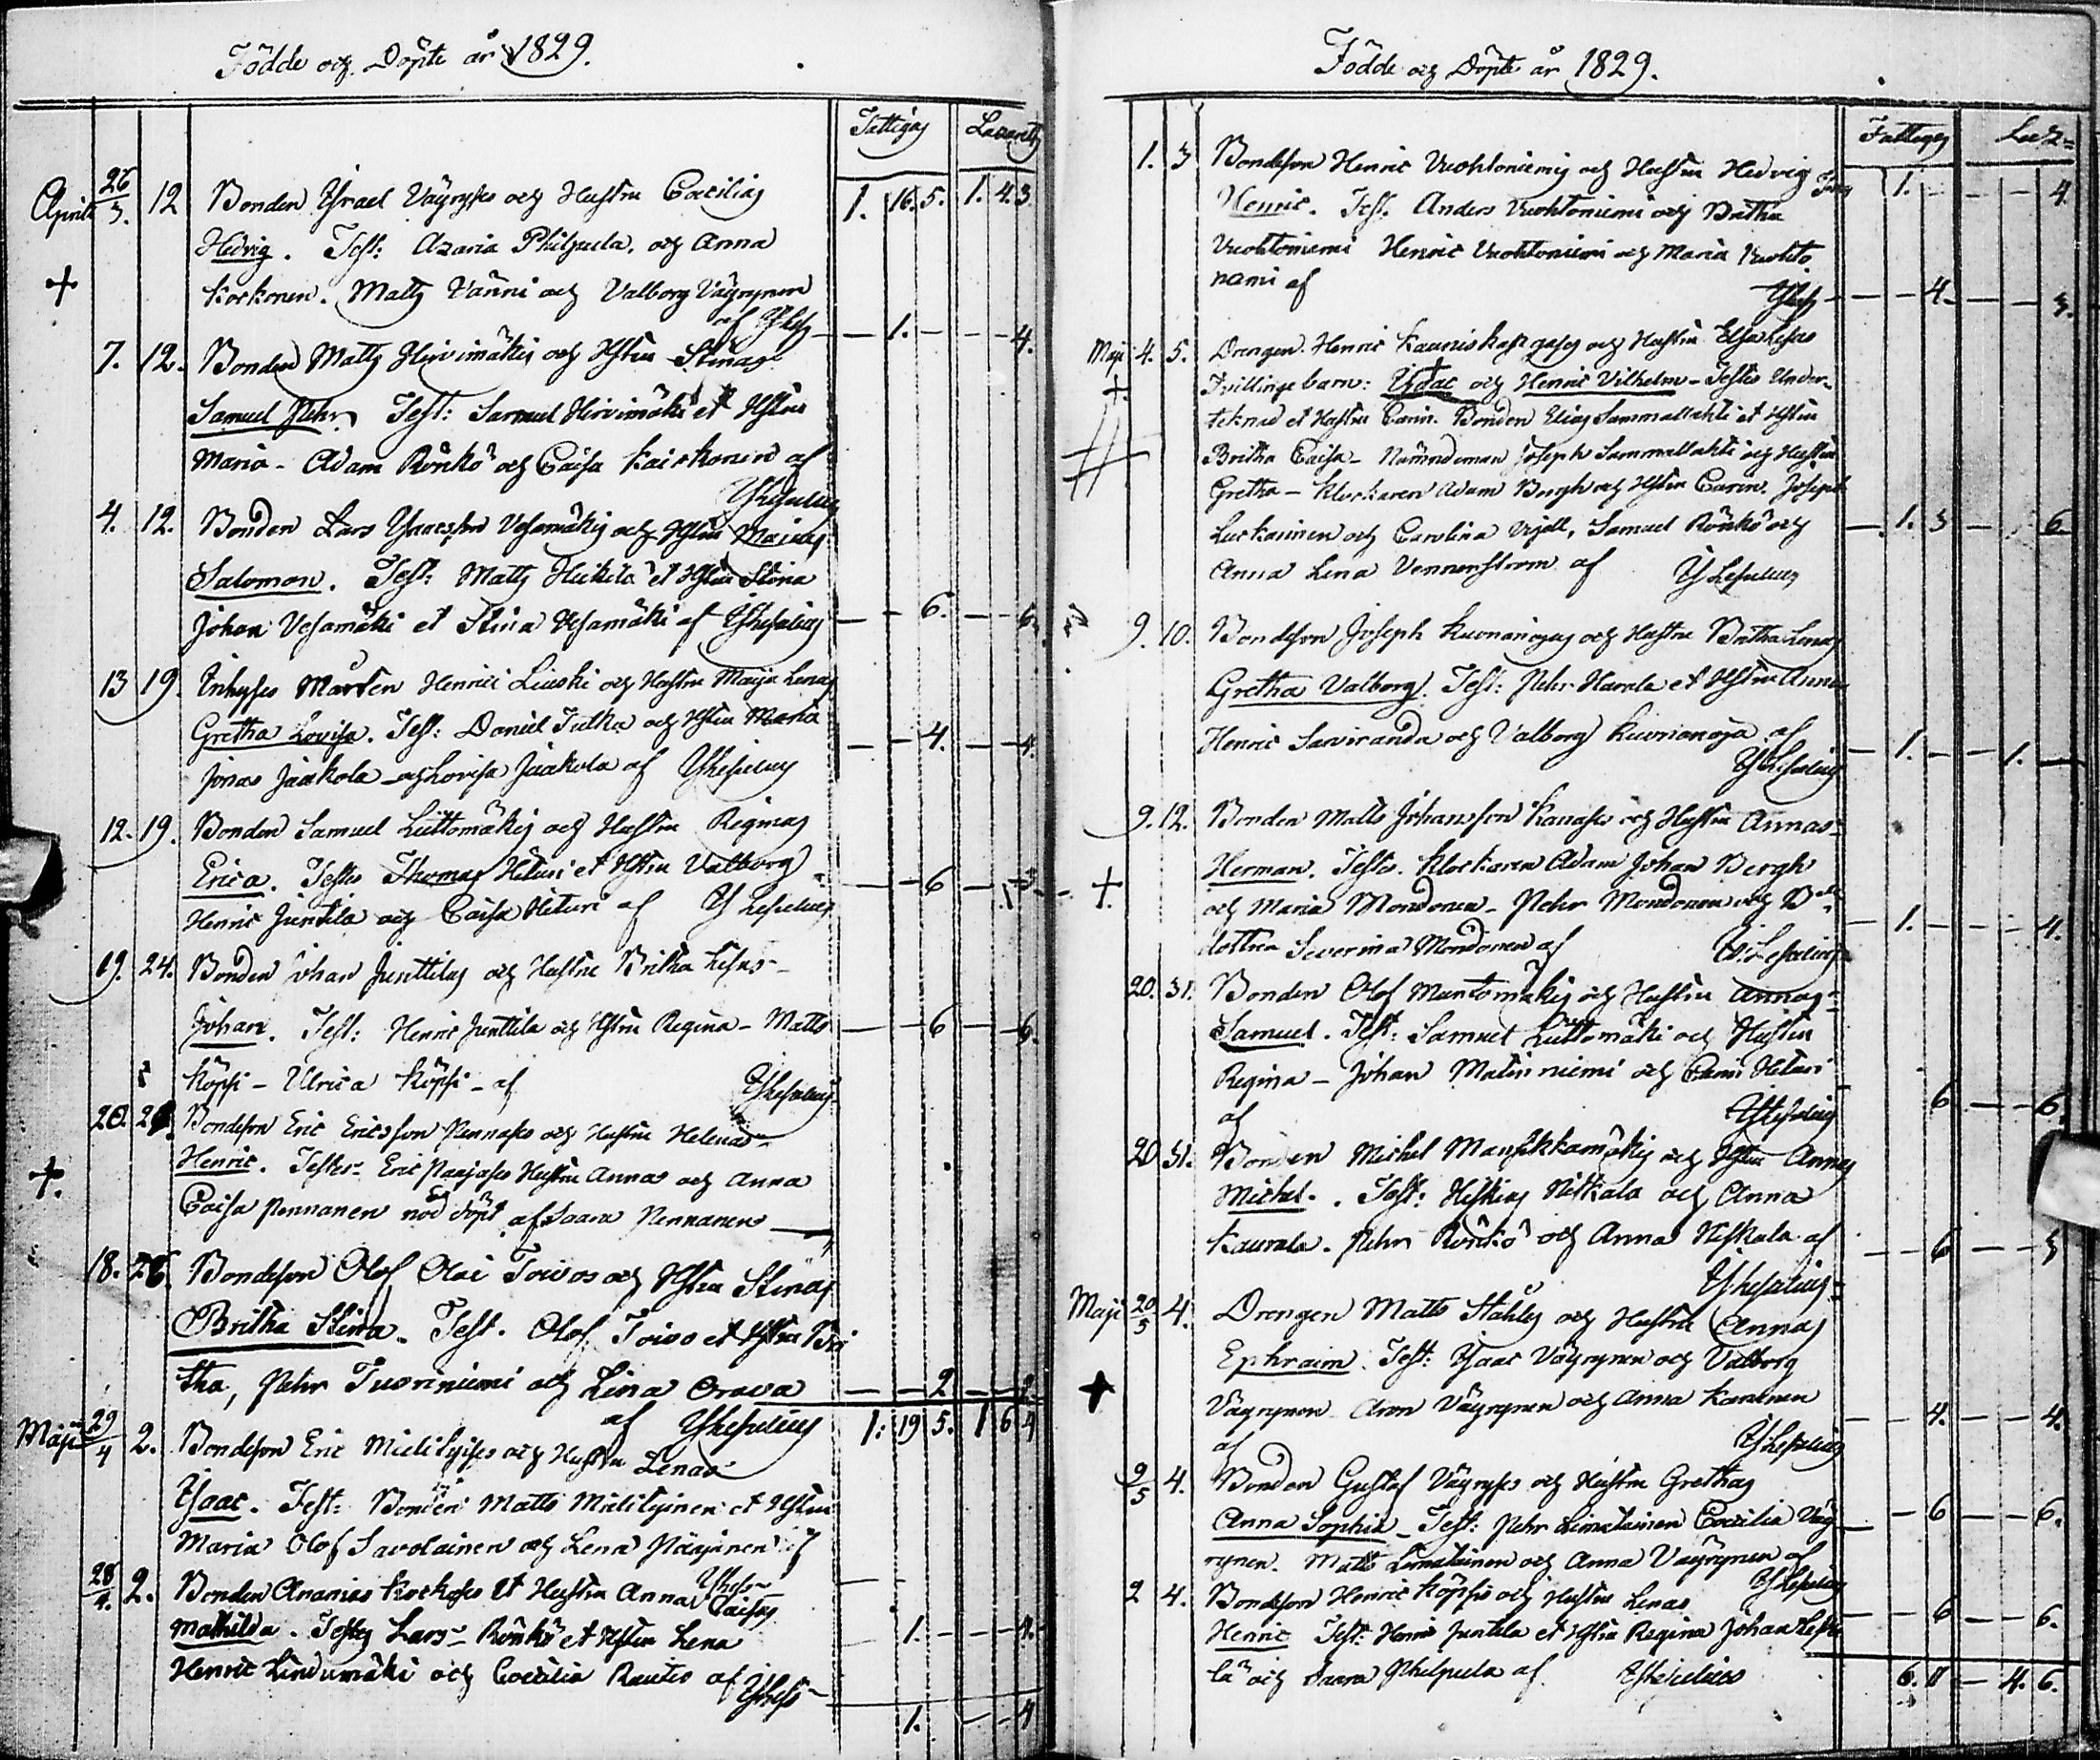 Födde och Döpte år 1829.
Fattigas Lazaretts
Aprill 26/3. 12 Bonden Ysrael Väyryses och Hustru Cæcilias 1. 16. 5. 1. 4. 3
Hedvig. Test: Azaria Philpula, och Anna
Korkonen. Matts Vänni och Valborg Väyrynen
af — 1. — 4.
7. 12. Bonden Matts Hirvimäkis och Hstru Stinas
Samuel Pehr. Test: Samuel Hirvimäki et Hstru
Maria - Adam Rönkö och Caisa Kaiskonen af
4. 12. Bonden Lars Vesamäkis och Hstru Majas
Salomon. Test: Matts Heikila et Hstru Stina
Johan Vesamäki et Stina Vesamäki af — 6. — 6.
13 19. Inhyses Mårten Henrici Liuski och Hustru Maija Lenas
Gretha Lovisa. Test: Daniel Tulka och Hstru Maria — 4. — 4.
Jonas Jaakola och Lovisa Jaakola af
12. 19. Bonden Samuel Luttomäkis och Hustru Reginas
Erica. Testes Thomas Hituri et Hstru Valborg — 6
Henric Juntila och Caisa Hituri af
19. 24. Bonden Johan Junttilas och Hustru Britha Lisas
Johan. Test: Henric Juntila och Hstru Regina - Matts — 6 — 6.
Köpsi - Ulrica Köpsi - af
20. Bondeson Eric Ericsson Pennases och Hustru Helenas
Henric. Testes - Eric Hustru Annas och Anna
Caisa Pennanen nöd döpt af Saara Pennanen
18. 26. Bondeson Olof Olai Toivos och Hstru Stinas
Britha Stina. Test. Olof Toivo et Hstru Bri
tha, Pehr Tuoriniemi och Lina Orava — 2 — 2.
af 1: 19 5. 1 6 4
Maji 29/4 2. Bondeson Eric och Hustru Lenas
Ysaac. Test: Bonden Matts et Hstru
Maria Olof Savolainen och Lena af
28/4. 2. Bonden Ananias Korkoses et Hustru Anna Caisas
Mathilda. Testes Lars Rönkö et Hstru Lena 1. — 4.
Henric Lindumäki och Coecilia Rautio af
1. — 4
Födde och Döpte år 1829.
Fattiges Laz=
1. 3 Bondeson Henric Vuohtoniemis och Hustru Hedvig 1. — 4.
Henric. Test. Anders Vuohtoniemi och Britha
Vuohtoniemi Henric Vuohtoniemi och Maria Vuohto
niemi af — 4. — 3.
Maji 4. 5. Drengen Henric Kauniskangases och Hustru Elsa Lisas
Tvillingebarn: Ysaac och Henric Vilhelm - Testes Under-
teknad et Hustru Carin. Bonden Elias Sammallahti et Hstru
Britha Caisa - Nämndeman Joseph Sammallahti och Hustru
Gretha - Klockaren Adam Bergh och Hstru Carin. Joseph
Luckarinen och Carolina, Samuel Rönkö och — 1. 3 — 6
Anna Lena Vennerström af
9. 10. Bondeson Joseph Kuonanojas och Hustru Britha Lenas
Gretha Valborg. Test: Pehr Harala et Hstru Anna
Henric Sarviranda och Valborg Kuonanoja af — 1. — 1.
9. 12. Bonden Matts Johansson Kanases och Hustru Annas
Herman. Testes. Klockaren Adam Johan Bergh
och Maria Mondonen - Pehr Mondonen och
dottren Severina Mondonen af — 1. — 4.
20. 31. Bonden Olof Muntomäkis och Hustru Annas
Samuel. Test: Samuel Luttomäki och Hustru
Regina - Johan Matinniemi och Hituri
af 6 — 6.
20 31. Bonden Michel Mansikkamäkis och Hstru Annas
Michel. Test: Hiskias Niskala och Anna
Kaurala. Pehr Rönkö och Anna Niskala af — 6
Maji 20/5 4. Drengen Matts Stahles och Hustru Annas
Ephraim. Test: Ysaac Väyrynen och Valborg
Väyrynen Aron Väyrynen och Anna — 4. — 4.
af
9/5 4. Bonden Gustaf Väyryses och Hustru Grethas
Anna Sophia - Test: Pehr Limatainen Cæcilia Väy — 6 — 6.
rynen. Matts Limatainen och Anna Väyrynen af
2 4. Bondeson Henric Köpsis och Hustru Lenas
Henric Test: Henric Juntila et Hstru Regina Johan — 6 — 6.
la och Saara Philpula af
6. 11 — 4. 6.